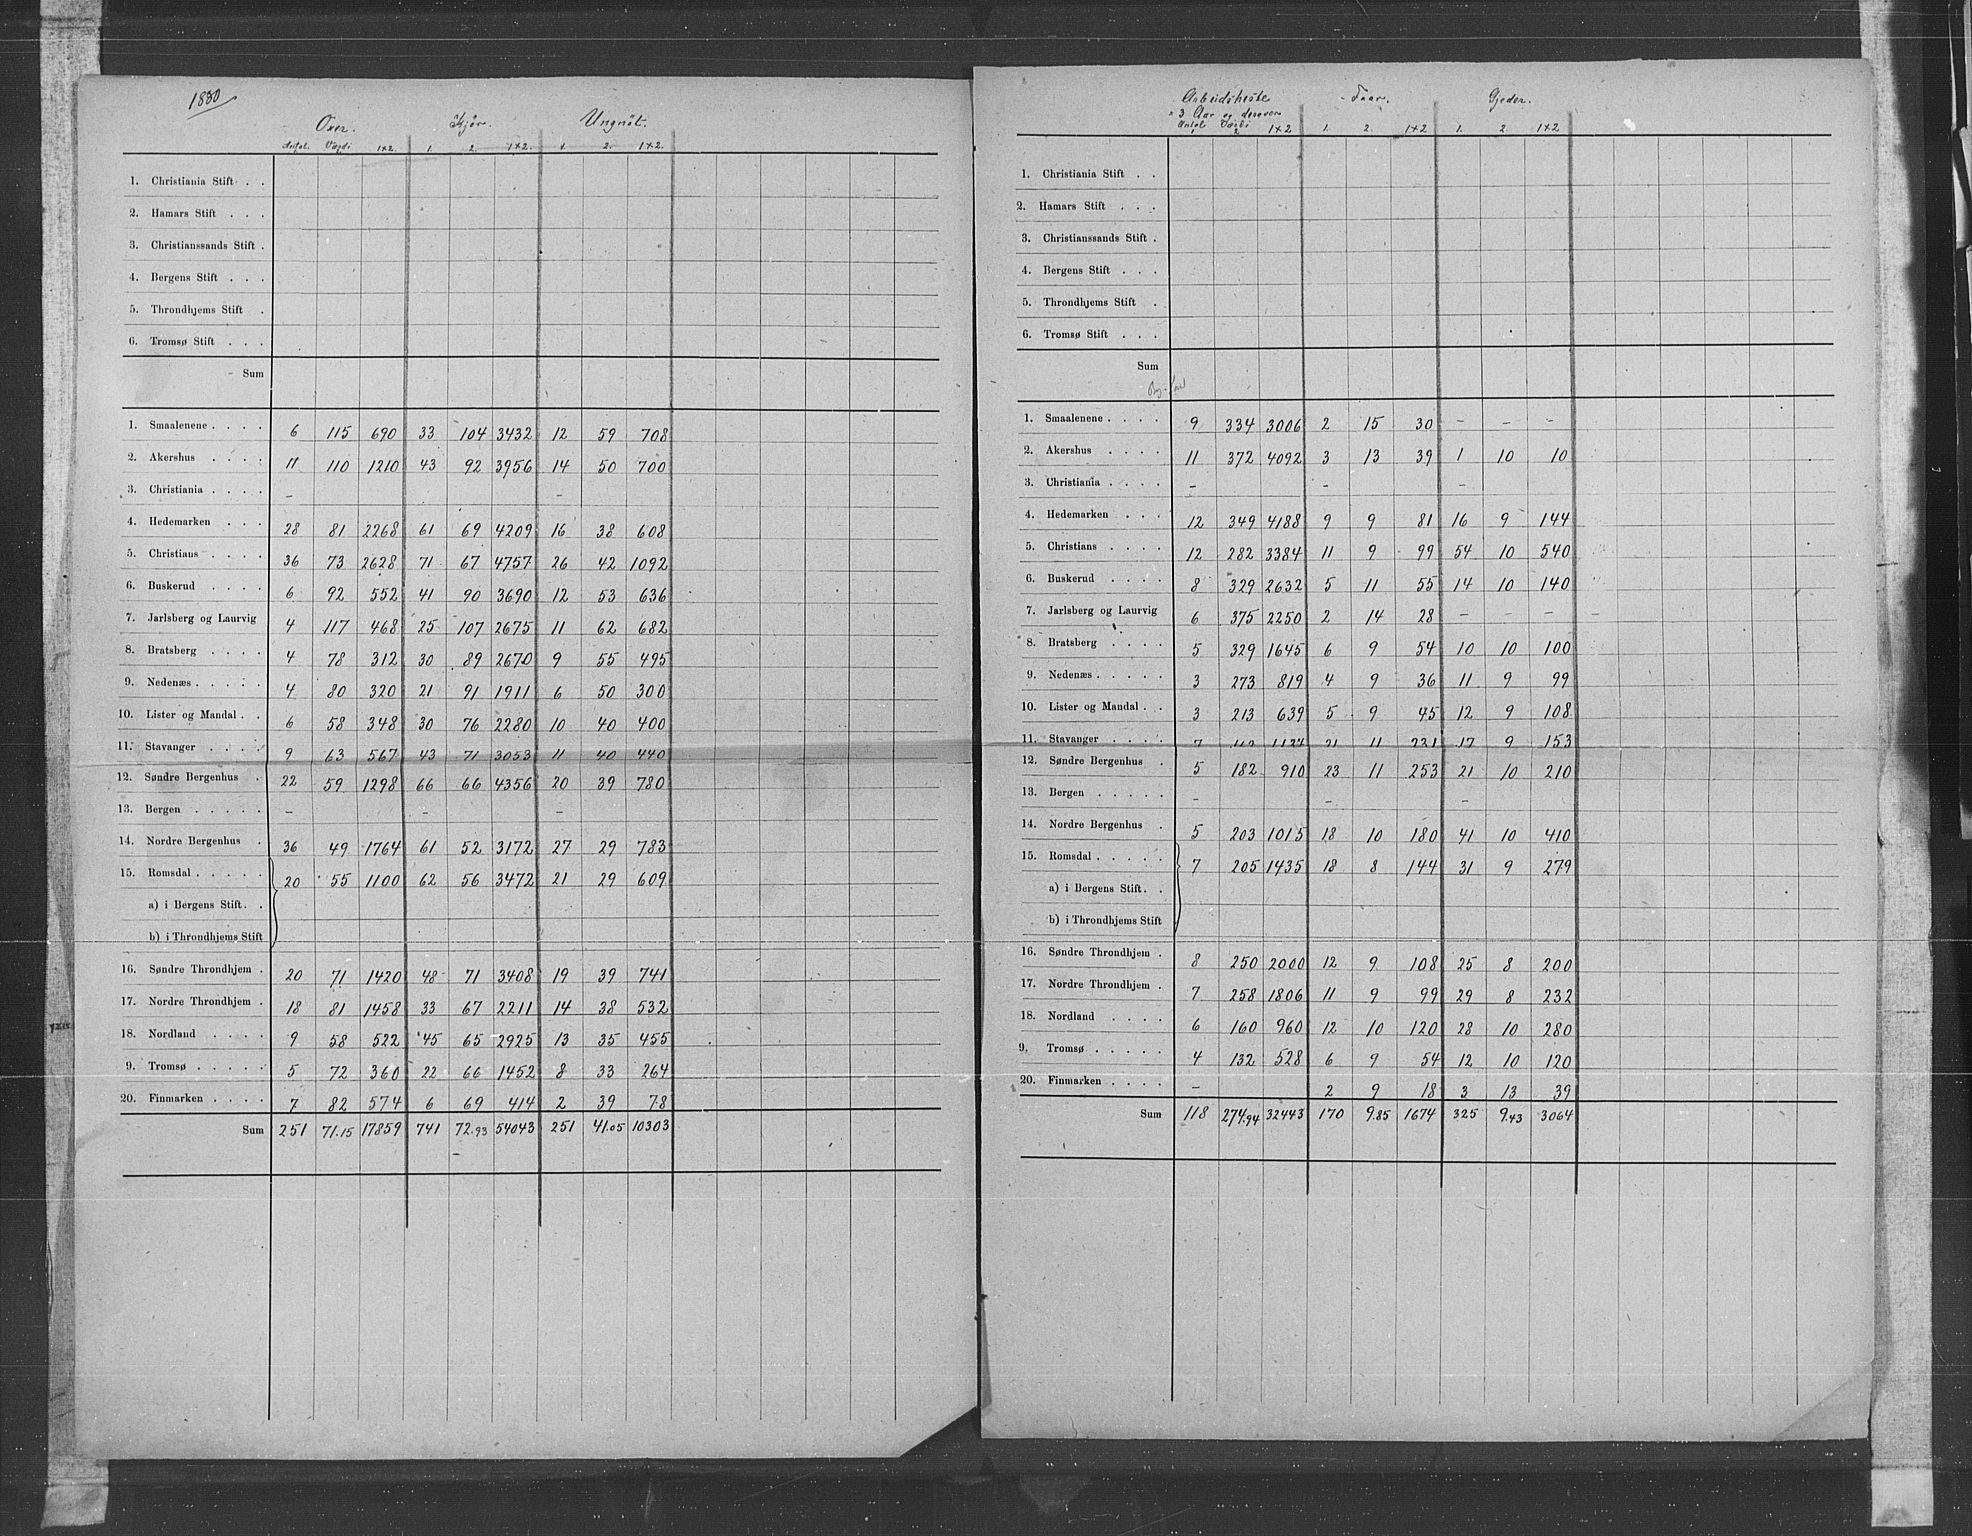 1880
Oxer. Kjør. Ungnöt.
Antal. Værdi 1×2. 1. 2. 1×2. 1. 2. 1×2.
1. Christiania Stift . .
2. Hamars Stift . . .
3. Christianssands Stift .
4. Bergens Stift . . .
5. Throndhjems Stift .
6. Tromsø Stift . . .
Sum
1. Smaalenene . . . . 6 115 690 33 104 3432 12 59 708
2. Akershus . . . . 11 110 1210 43 92 3956 14 50 700
3. Christiania . . . . – –
4. Hedemarken . . . 28 81 2268 61 69 4209 16 38 608
5. Christians . . . . 36 73 2628 71 67 4757 26 42 1092
6. Buskerud . . . . 6 92 552 41 90 3690 12 53 636
7. Jarlsberg og Laurvig 4 117 468 25 107 2675 11 62 682
8. Bratsberg . . . . 4 78 312 30 89 2670 9 55 495
9. Nedenæs . . . . . 4 80 320 21 91 1911 6 50 300
10. Lister og Mandal . . 6 58 348 30 76 2280 10 40 400
11. Stavanger . . . . 9 63 567 43 71 3053 11 40 440
12. Søndre Bergenhus . 22 59 1298 66 66 4356 20 39 780
13. Bergen . . . . . – – –
14. Nordre Bergenhus . 36 49 1764 61 52 3172 27 29 783
15. Romsdal . . . . . 20 55 1100 62 56 3472 21 29 609
a) i Bergens Stift . .
b) i Throndhjems Stift
16. Søndre Throndhjem . 20 71 1420 48 71 3408 19 39 741
17. Nordre Throndhjem . 18 81 1458 33 67 2211 14 38 532
18. Nordland . . . . 9 58 522 45 65 2925 13 35 455
9. Tromsø . . . . . 5 72 360 22 66 1452 8 33 264
20. Finmarken . . . . 7 82 574 6 69 414 2 39 78
Sum 251 71.15 17859 741 72.93 54043 251 41.05 10303
Arbeidsheste Faar. Gjeder.
3 Aar og derover
Antal Værdi 1×2 1. 2. 1×2 1. 2. 1×2
2
1. Christiania Stift . .
2. Hamars Stift . . .
3. Christianssands Stift .
4. Bergens Stift . . .
5. Throndhjems Stift .
6. Tromsø Stift . . .
Sum
1. Smaalenene . . . . 9 334 3006 2 15 30 – – –
2. Akershus . . . . 11 372 4092 3 13 39 1 10 10
3. Christiania . . . . – – –
4. Hedemarken . . . 12 349 4188 9 9 81 16 9 144
5. Christians . . . . 12 282 3384 11 9 99 54 10 540
6. Buskerud . . . . 8 329 2632 5 11 55 14 10 140
7. Jarlsberg og Laurvig 6 375 2250 2 14 28 – – – –
8. Bratsberg . . . . 5 329 1645 6 9 54 10 10 100
9. Nedenæs . . . . . 3 273 819 4 9 36 11 9 99
10. Lister og Mandal . . 3 213 639 5 9 45 12 9 108
11. Stavanger . . . . 7 21 11 231 17 9 153
12. Søndre Bergenhus . 5 182 910 23 11 253 21 10 210
13. Bergen . . . . . – – –
14. Nordre Bergenhus . 5 203 1015 18 10 180 41 10 410
15. Romsdal . . . . . 7 205 1435 18 8 144 31 9 279
a) i Bergens Stift . .
b) i Throndhjems Stift
16. Søndre Throndhjem . 8 250 2000 12 9 108 25 8 200
17. Nordre Throndhjem . 7 258 1806 11 9 99 29 8 232
18. Nordland . . . . 6 160 960 12 10 120 28 10 280
9. Tromsø . . . . . 4 132 528 6 9 54 12 10 120
20. Finmarken . . . . – 2 9 18 3 13 39
Sum 118 274.94 32443 170 9.85 1674 325 9.43 3064